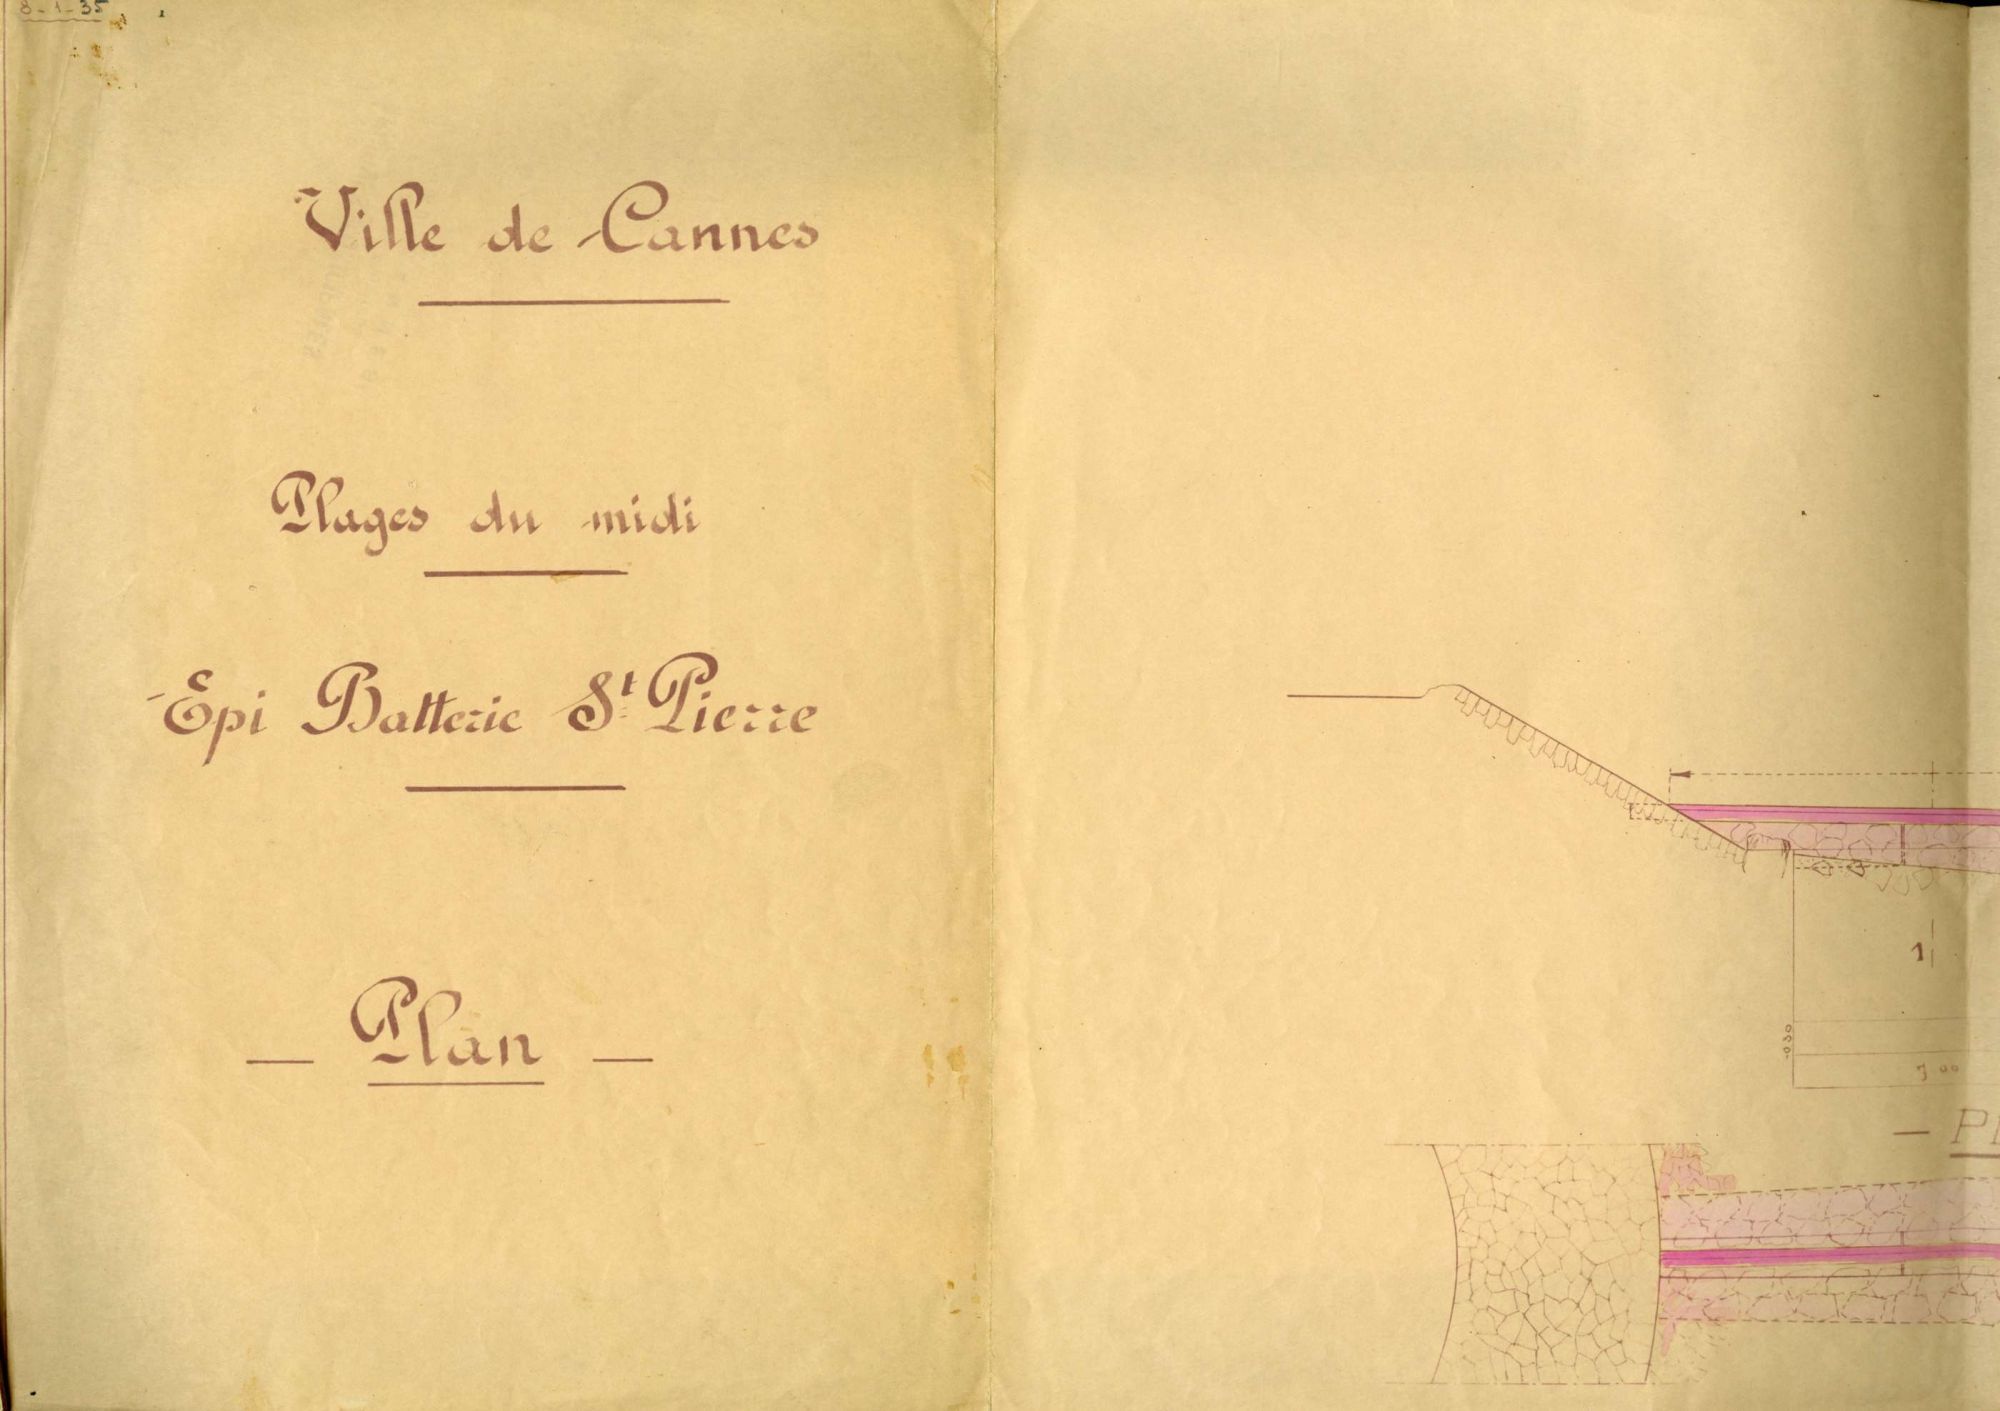 8-1-35
Ville de Cannes
Plages du midi
Epi Batterie St Pierre
— Plan —
1
-0.50
— Pl